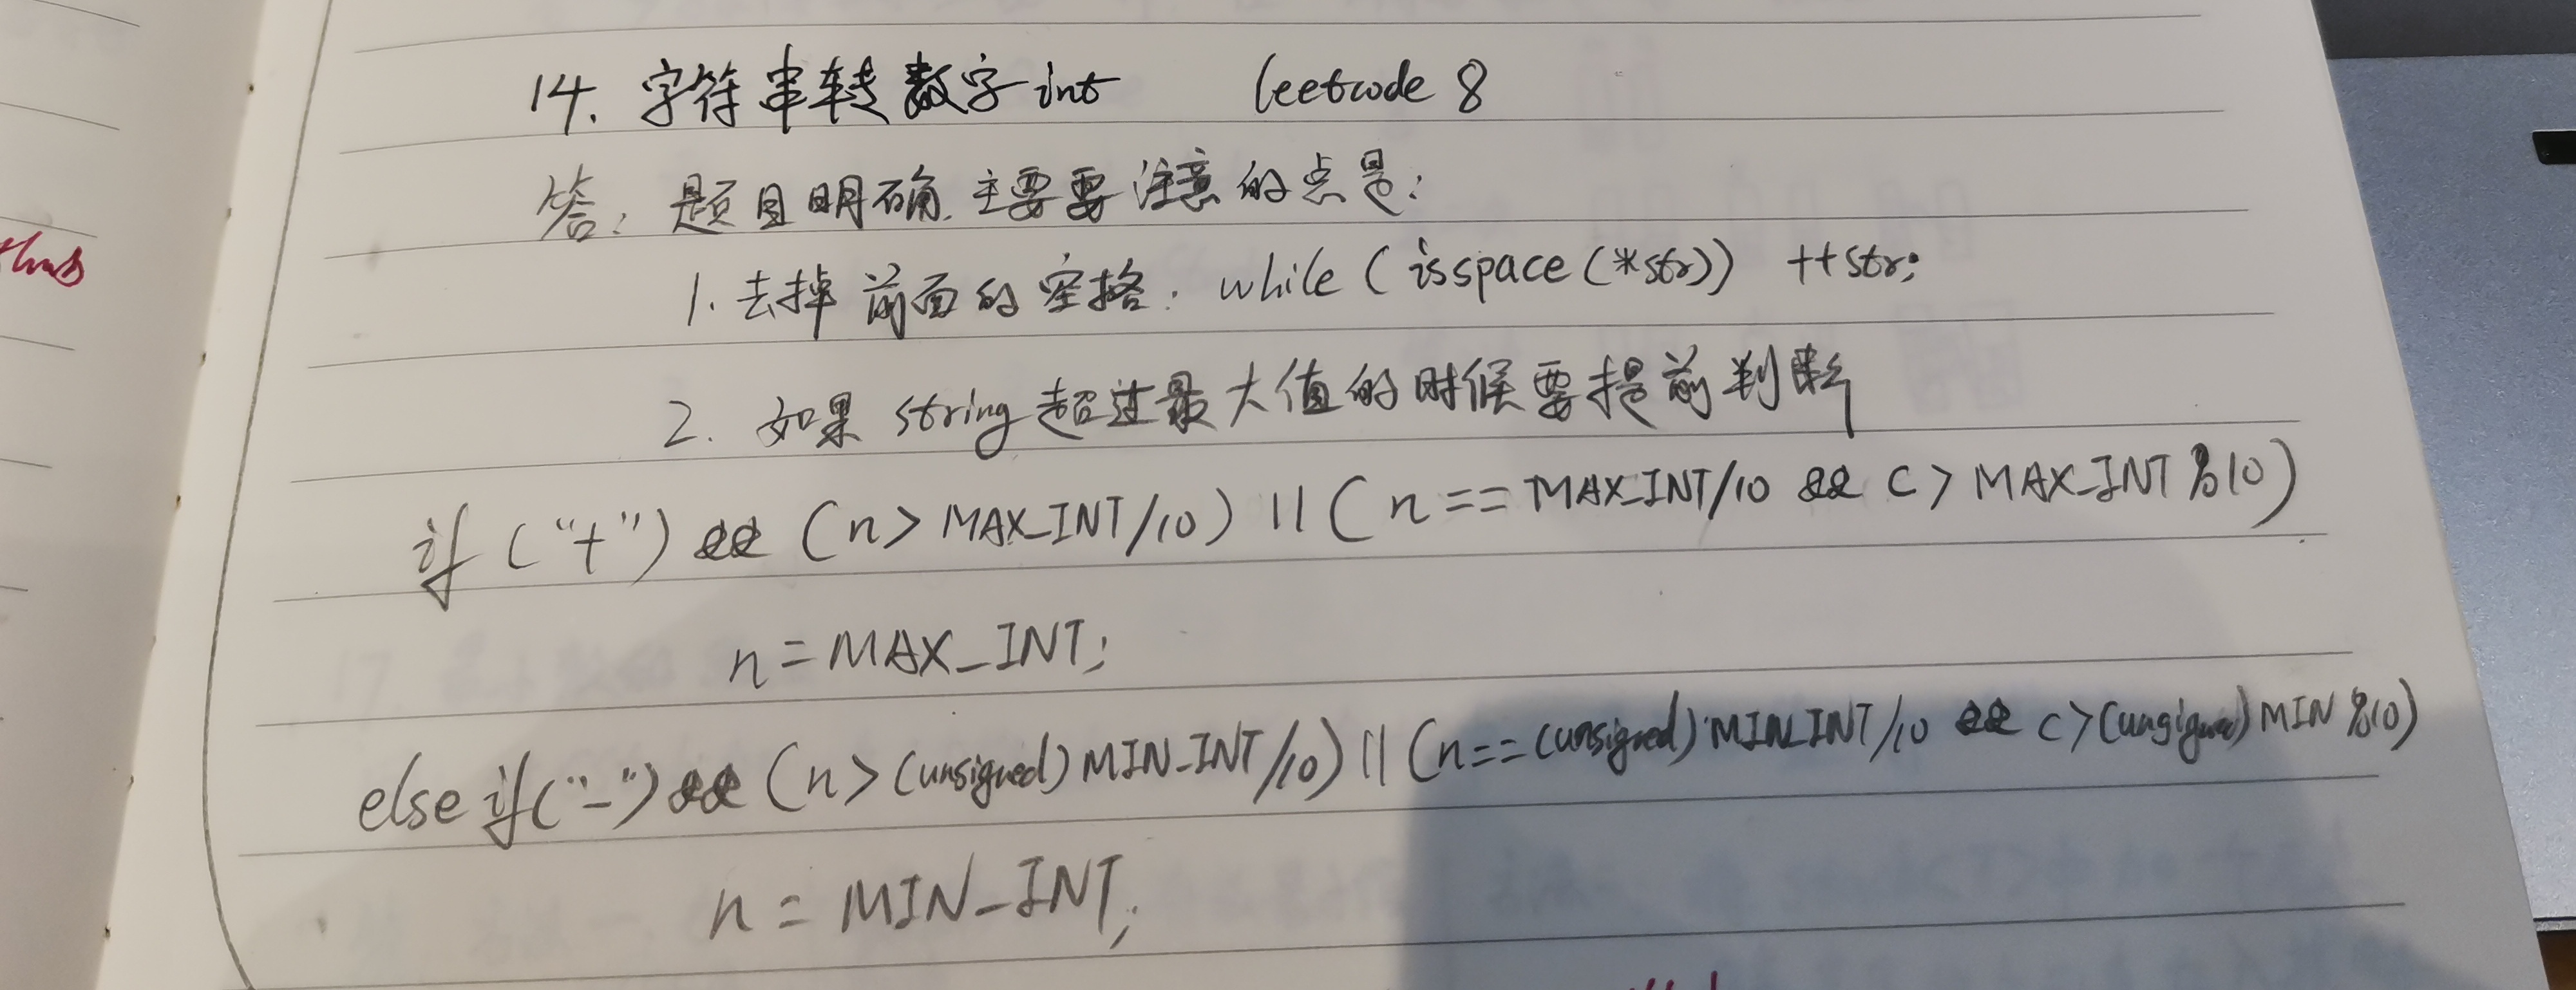 14. 字符串转数字int leetcode 8
答: 题目明确. 主要要注意的点是:
1. 去掉前面的空格. while (isspace(*str)) ++str;
2. 如果string超过最大值的时候要提前判断
if ("+") && (n > MAX_INT/10) || ( n == MAX_INT/10 && c > MAX_INT%10)
n = MAX_INT;
else if ("-") && (n > (unsigned) MIN_INT/10) || (n == (unsigned) MIN_INT/10 && c > (unsigned) MIN%10)
n = MIN_INT;